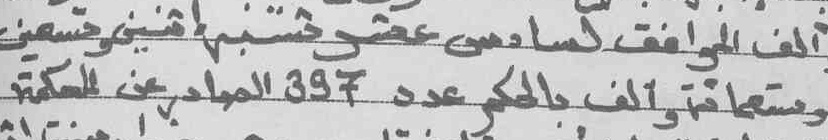 ألف الموافق لسادس عشر شتنبر اثنين وتسعين
وتسعمائة وألف بالحكم عدد 397 الصادر عن المحكمة